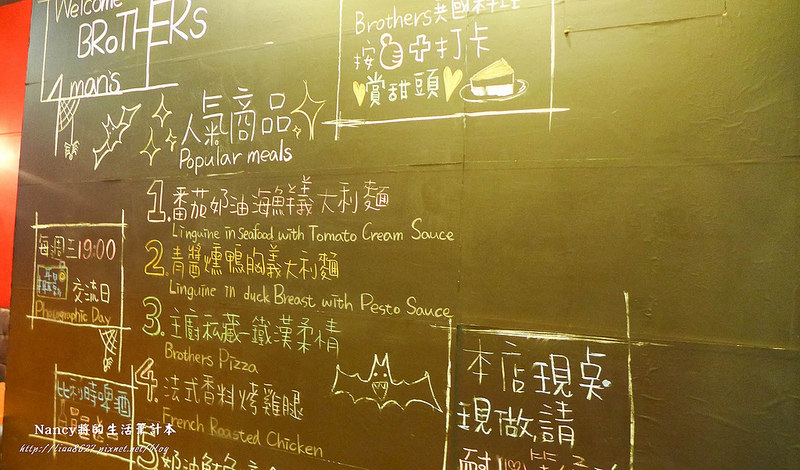 Welcome
BROTHERS
4 man's
Brothers異國料理
打卡
賞甜頭
人氣商品
Popular meals
1.番茄奶油海鮮義大利麵
Linguine in seafood with Tomato Cream Sauce
2.青醬燻鴨胸義大利麵
Linguine in duck Breast with Pesto Sauce
3.主廚私藏-鐵漢柔情
Brothers Pizza
4.法式香料烤雞腿
French Roasted Chicken
5.奶油
每週三19:00
交流日
Photographic Day
比利時啤酒
本店現桌
現做,請
耐
Nancy將的生活筆計本
http://liau8627.pixnet.net/blog